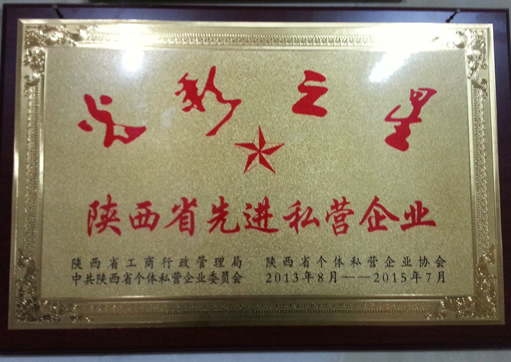 光彩之星
陕西省先进私营企业
陕西省工商行政管理局 陕西省个体私营企业协会
中共陕西省个体私营企业委员会 2013年8月——2015年7月